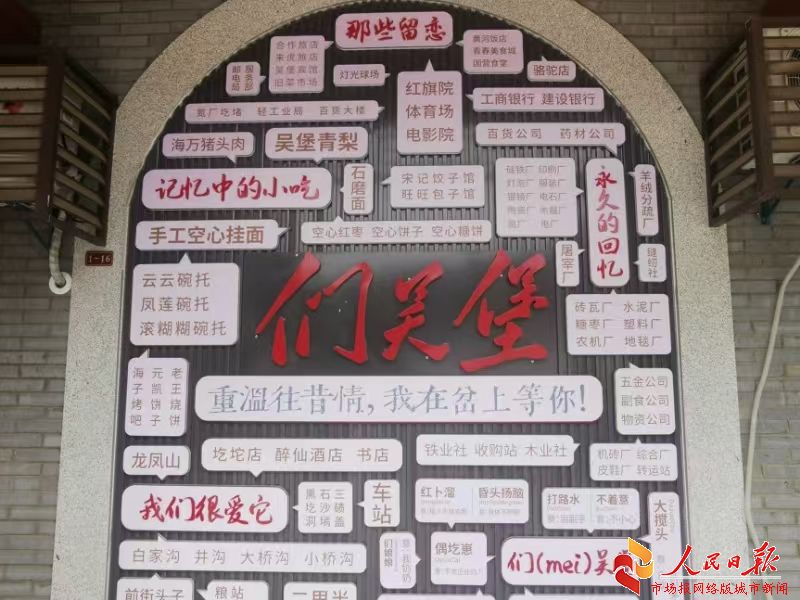 那些留恋
合作旅店
朱虎旅店
吴堡宾馆
旧菜市场
邮电局
服务部
灯光球场
黄河饭店
青春美食城
国营食堂
骆驼店
红旗院
体育场
电影院
工商银行 建设银行
氮厂圪堵 轻工业局 百货大楼
百货公司 药材公司
海万猪头肉
吴堡青梨
记忆中的小吃
石磨面
宋记饺子馆
旺旺包子馆
永久的回忆
羊绒分疏厂
缝纫社
屠宰厂
手工空心挂面
空心红枣 空心饼子 空心糖饼
1-16
云云碗托
凤莲碗托
滚糊糊碗托
们吴堡
砖瓦厂 水泥厂
糖枣厂 塑料厂
农机厂 地毯厂
重温往昔情,我在岔上等你!
海子烤吧
元凯饼子
老王烧饼
五金公司
副食公司
物资公司
龙凤山
圪坨店 醉仙酒店 书店
铁业社 收购站 木业社
机砖厂 综合厂
皮鞋厂 转运站
我们很爱它
黑圪洞
石沙塔
三碛盖
车站
红卜溜
昏头扬脑
打路水
不着意
大搅头
白家沟 井沟 大桥沟 小桥沟
们娘娘
偶圪崽
们(mei)吴
前街头子
粮站
二里半
人民日报
市场报网络版城市新闻